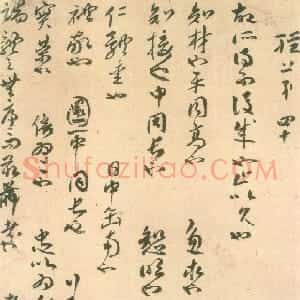 經上第四十
故所得而後成也止以久也
知材也平同高也 慮求也
知接也中同長也 恕明也
仁體愛也 日中正南也
禮敬也 圜一中同長也
實榮也 倍為二也 忠以為
端體之無序而最前者也
Shufaziliao.com